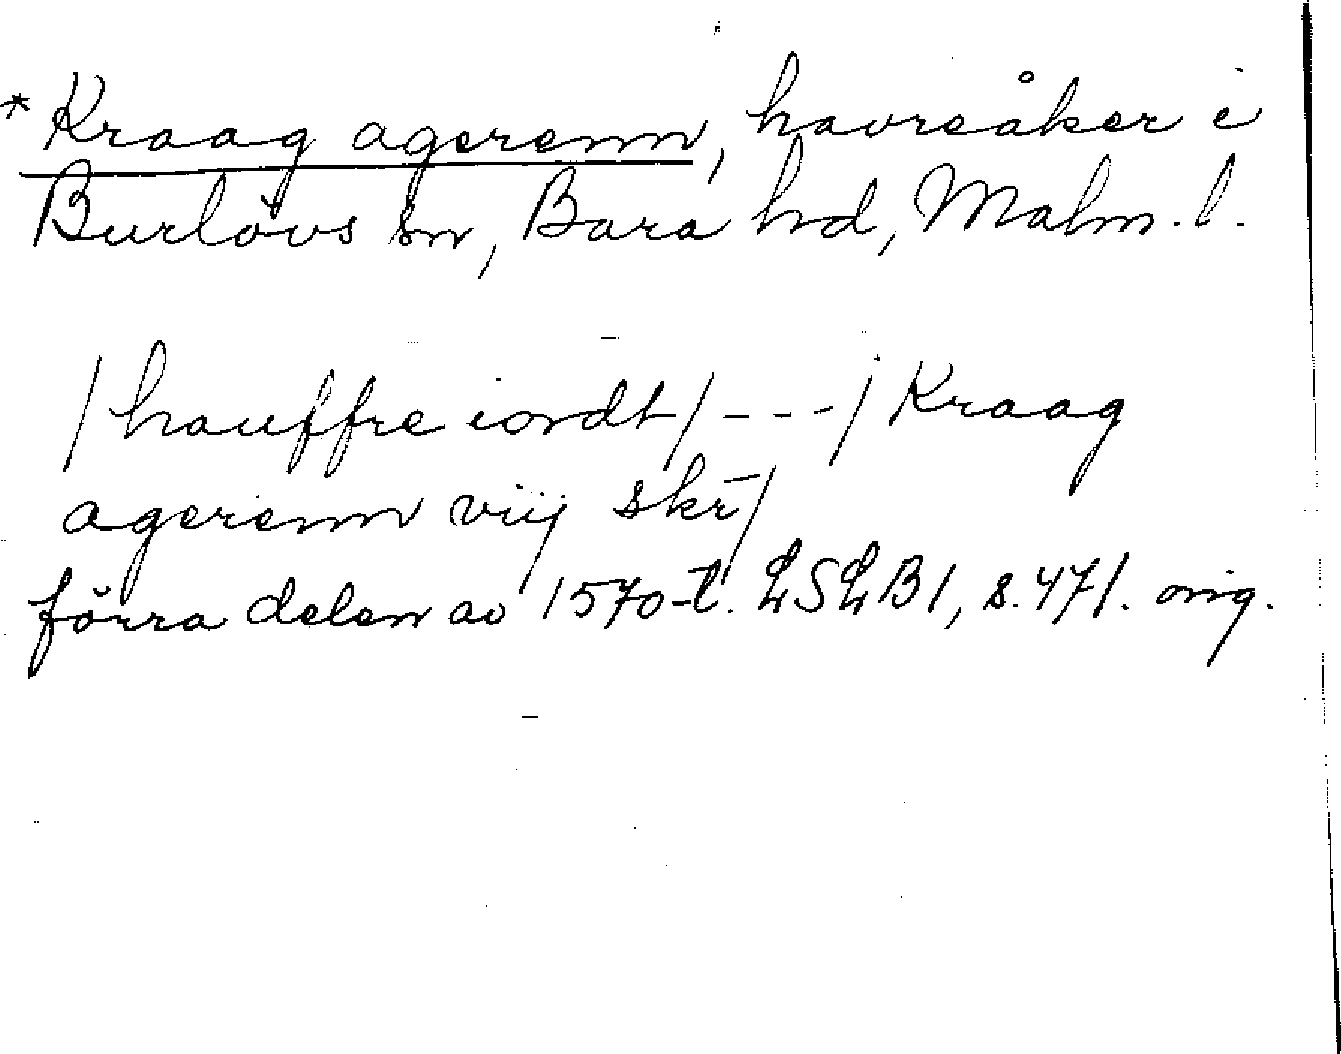 * Kraag agerenn, havreåker i
Burlövs sn, Bara hd, Malm. l.
/hauffre iordt/ - - - / Kraag
agerenn viij skr̄/
förra delen av 1570-t. LSLB1, s. 471. orig.